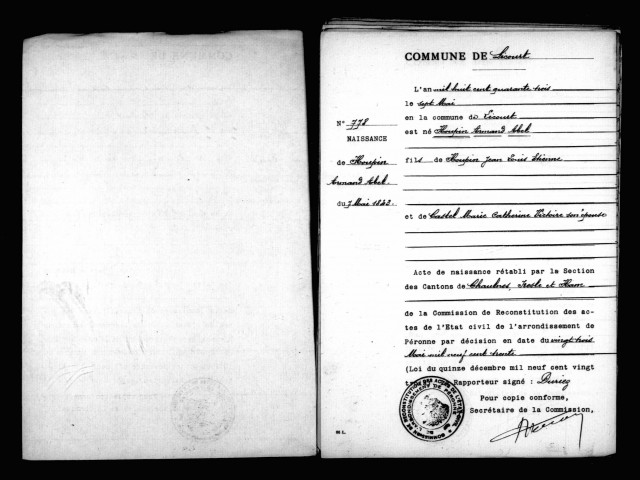 COMMUNE DE Licourt
L'an mil huit cent quarante trois
le sept Mai
en la commune de Licourt
est né Houpin Armand Abel
N° 778
NAISSANCE
de Houpin
Armand Abel.
du 7 Mai 1843
fils de Houpin Jean Louis Etienne
et de Castel Marie Catherine Victoire son épouse
Acte de naissance rétabli par la Section
des Cantons de Chaulnes, Nesle et Ham
de la Commission de Reconstitution des ac-
tes de l'Etat civil de l'arrondissement de
Péronne par décision en date du vingt trois
Mai mil neuf cent trente
(Loi du quinze décembre mil neuf cent vingt
Rapporteur signé : Duriez
Pour copie conforme,
Secrétaire de la Commission,